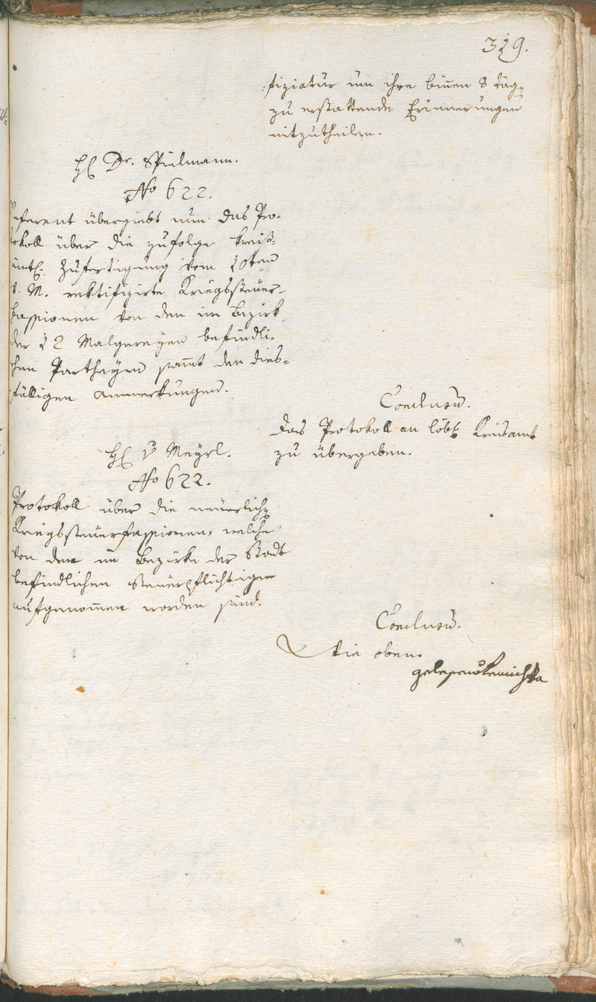 319.
fiziatur um ihre binnen 8 täg.
zu erstattende Erinnerungen
mitzutheilen.
H Dr. Spielmann.
No 622.
Referent übergiebt nun das Pro-
tokoll über die zufolge kreis-
ämtl. Zufertigung vom 20ten
d. M. rektifizirte Kriegssteuer-
fassionen von den im Bezirk
der 12 Malgereyen befindli-
chen Partheyen sammt den dies-
fälligen Anmerkungen.
Conclusum.
Das Protokoll an löbl. Kreisamt
zu übergeben.
H v Mayrl.
No 622.
Protokoll über die neuerliche
Kriegssteuerfassionen, welche
von den im Bezirke der Stadt
befindlichen Steuerpflichtigen
aufgenommen worden sind.
Conclusum.
Wie oben.
gelesen